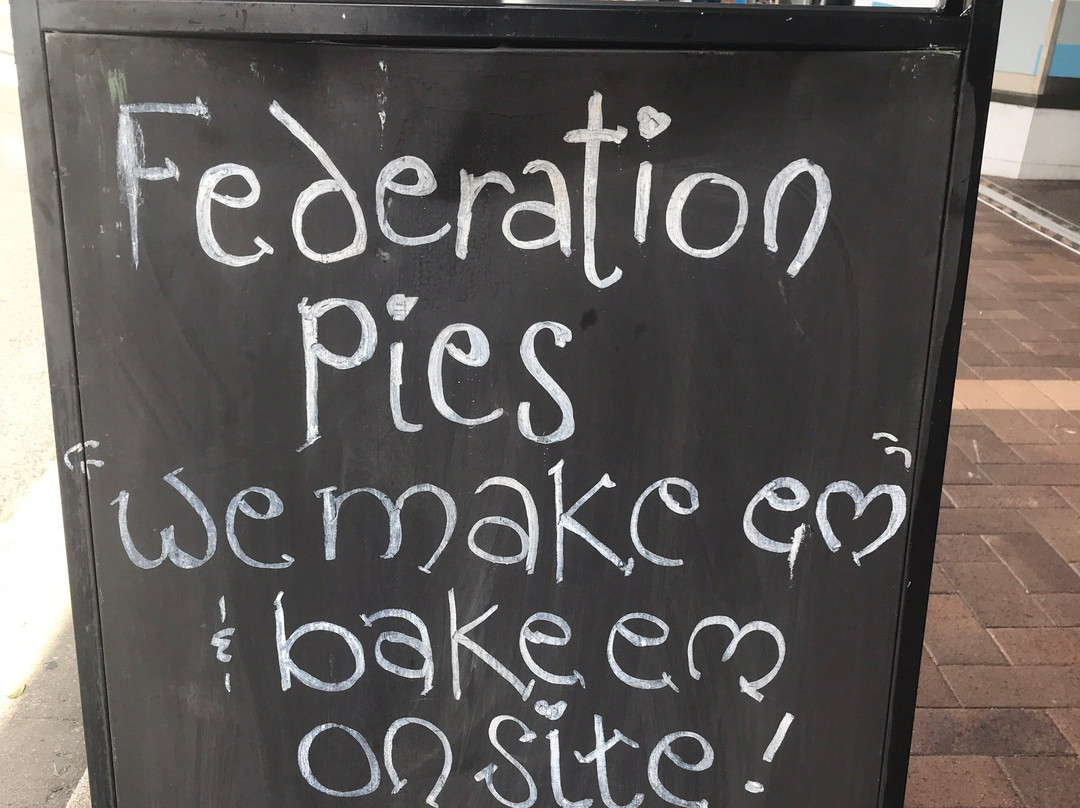 Federation
Pies
"We make em"
& bake em
on site!